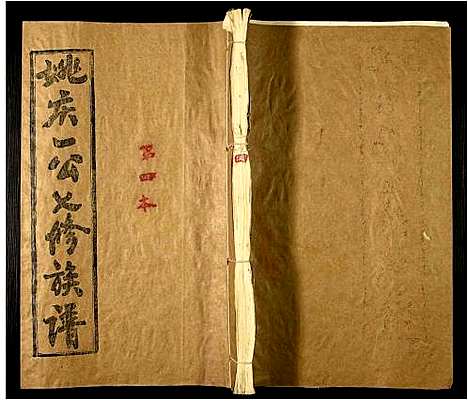 姚庆一公七修族谱
第四本
四